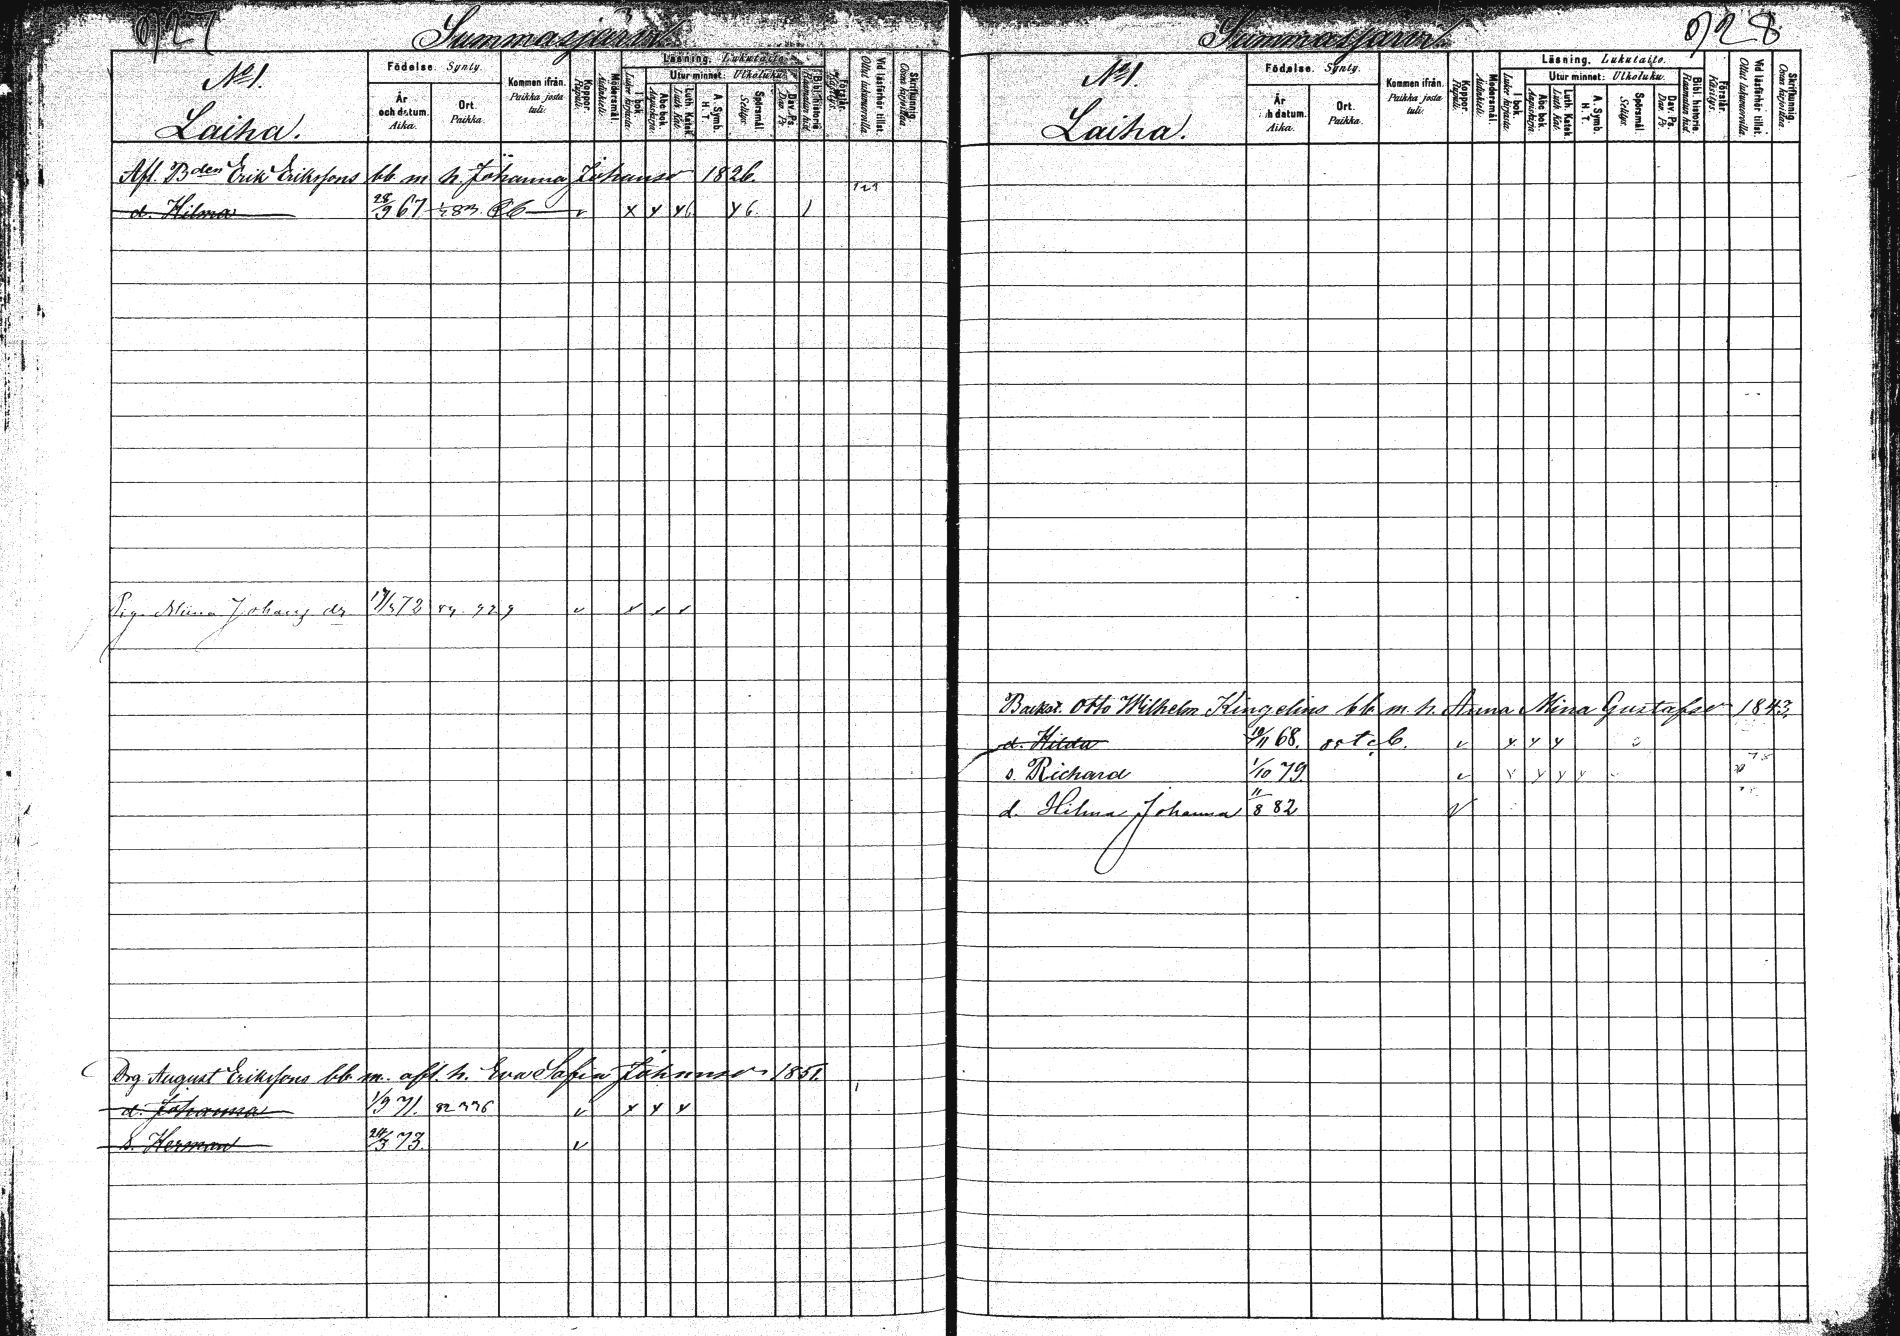 927
Summasjärvi
No 1.
Laiha.
Födelse. Synty.
År och datum. Aika.
Ort. Paikka.
Kommen ifrån. Paikka josta tuli.
Koppor. Rupuli.
Modersmål. Äidinkieli.
Läsning. Lukutaito.
I bok. Lukee kirjasta.
Utur minnet: Ulkoluku:
Abc bok. Aapiskirja.
Luth. Katek. Luth. Kat.
A. Symb. H. T.
Spörsmål. Selitys.
Dav. Ps. Dav. Ps.
Bibl. historie. Raamatun hist.
Förstår. Käsitys.
Vid läsförhör tillst. Ollut lukuvuorolla.
Skrifkunnig. Osaa kirjoittaa.
Afl. Bden Erik Eriksons bb. m. h. Johanna Johansdr 1826.
d. Hilma 28/9 67
Pig. Miina Johansdr 72 929
Drg. August Eriksons bb. m. afl. h. Eva Sofia Johansdr 1851.
d. Johanna 1/9 71.
s. Herman 24/3 73.
928
Summasjärvi
No 1.
Laiha.
Födelse. Synty.
År och datum. Aika.
Ort. Paikka.
Kommen ifrån. Paikka josta tuli.
Koppor. Rupuli.
Modersmål. Äidinkieli.
Läsning. Lukutaito.
I bok. Lukee kirjasta.
Utur minnet: Ulkoluku:
Abc bok. Aapiskirja.
Luth. Katek. Luth. Kat.
A. Symb. H. T.
Spörsmål. Selitys.
Dav. Ps. Dav. Ps.
Bibl. historie. Raamatun hist.
Förstår. Käsitys.
Vid läsförhör tillst. Ollut lukuvuorolla.
Skrifkunnig. Osaa kirjoittaa.
Backst. Otto Wilhelm Kingelins bb. m. h. Anna Mina Gustafsdr 1843.
d. Hilda 68.
s. Richard 1/10 79.
d. Hilma Johanna 11/8 82